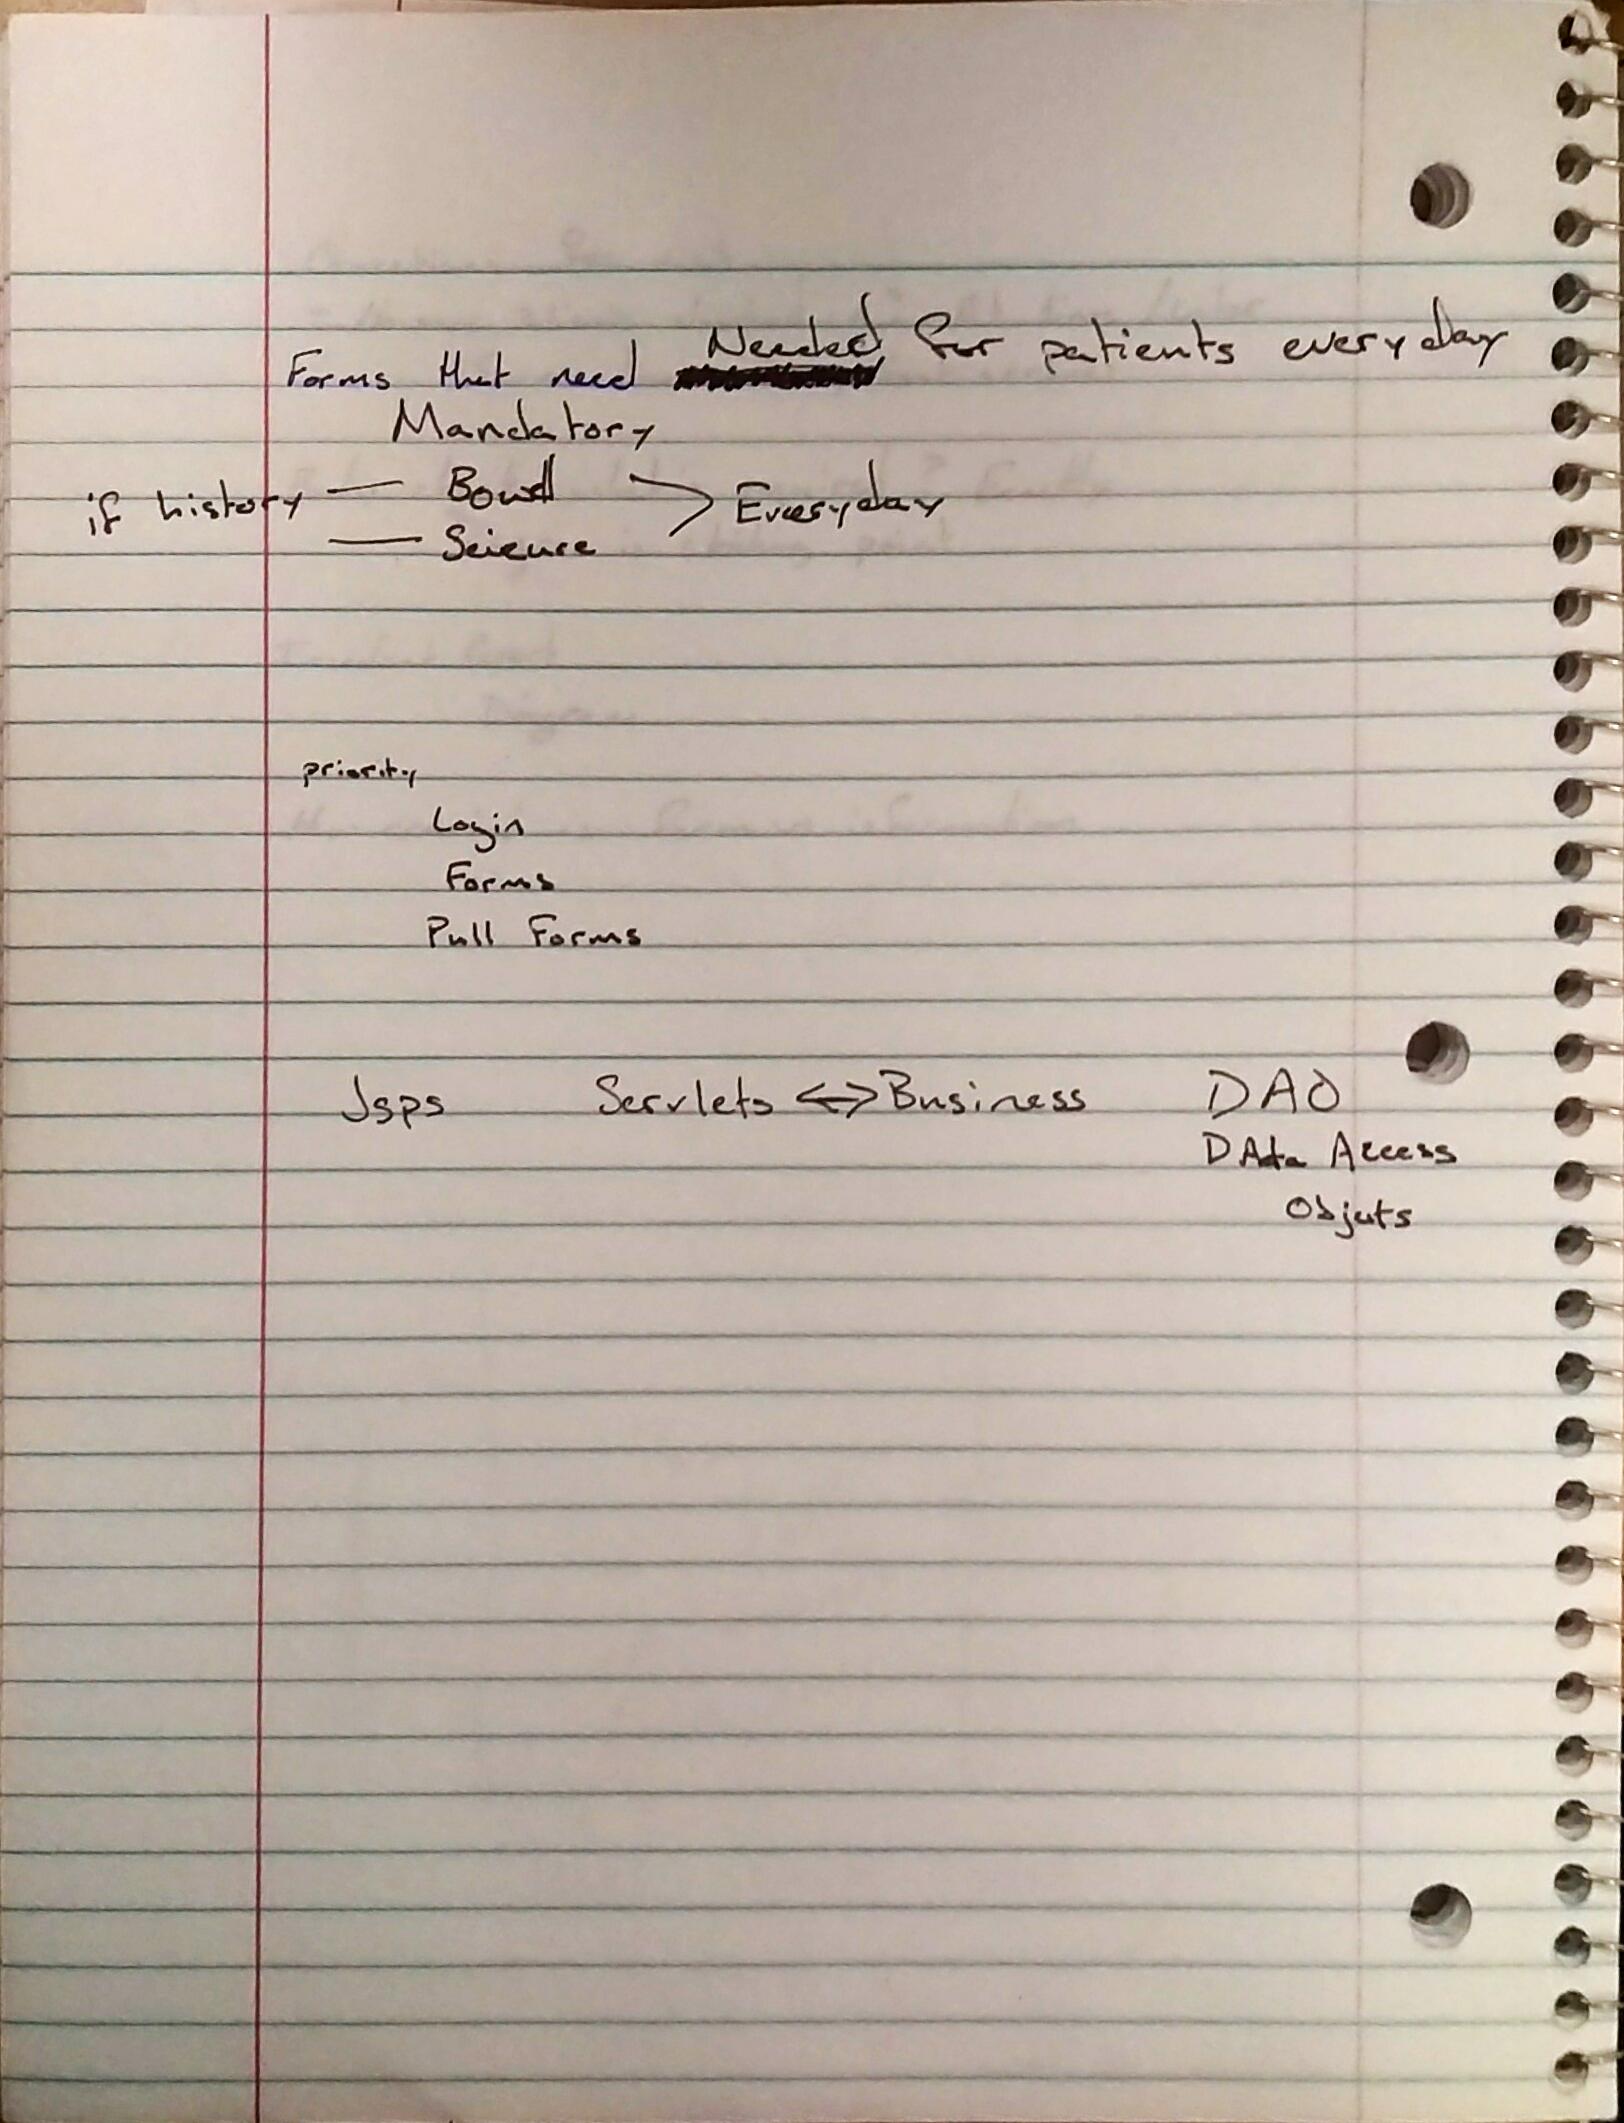 Forms that need Needed for patients everyday
Mandatory
if history — Bowel > Everyday
— Seizure
priority
Login
Forms
Pull Forms
Jsps Servlets <-> Business DAO
DAta Access
Objects